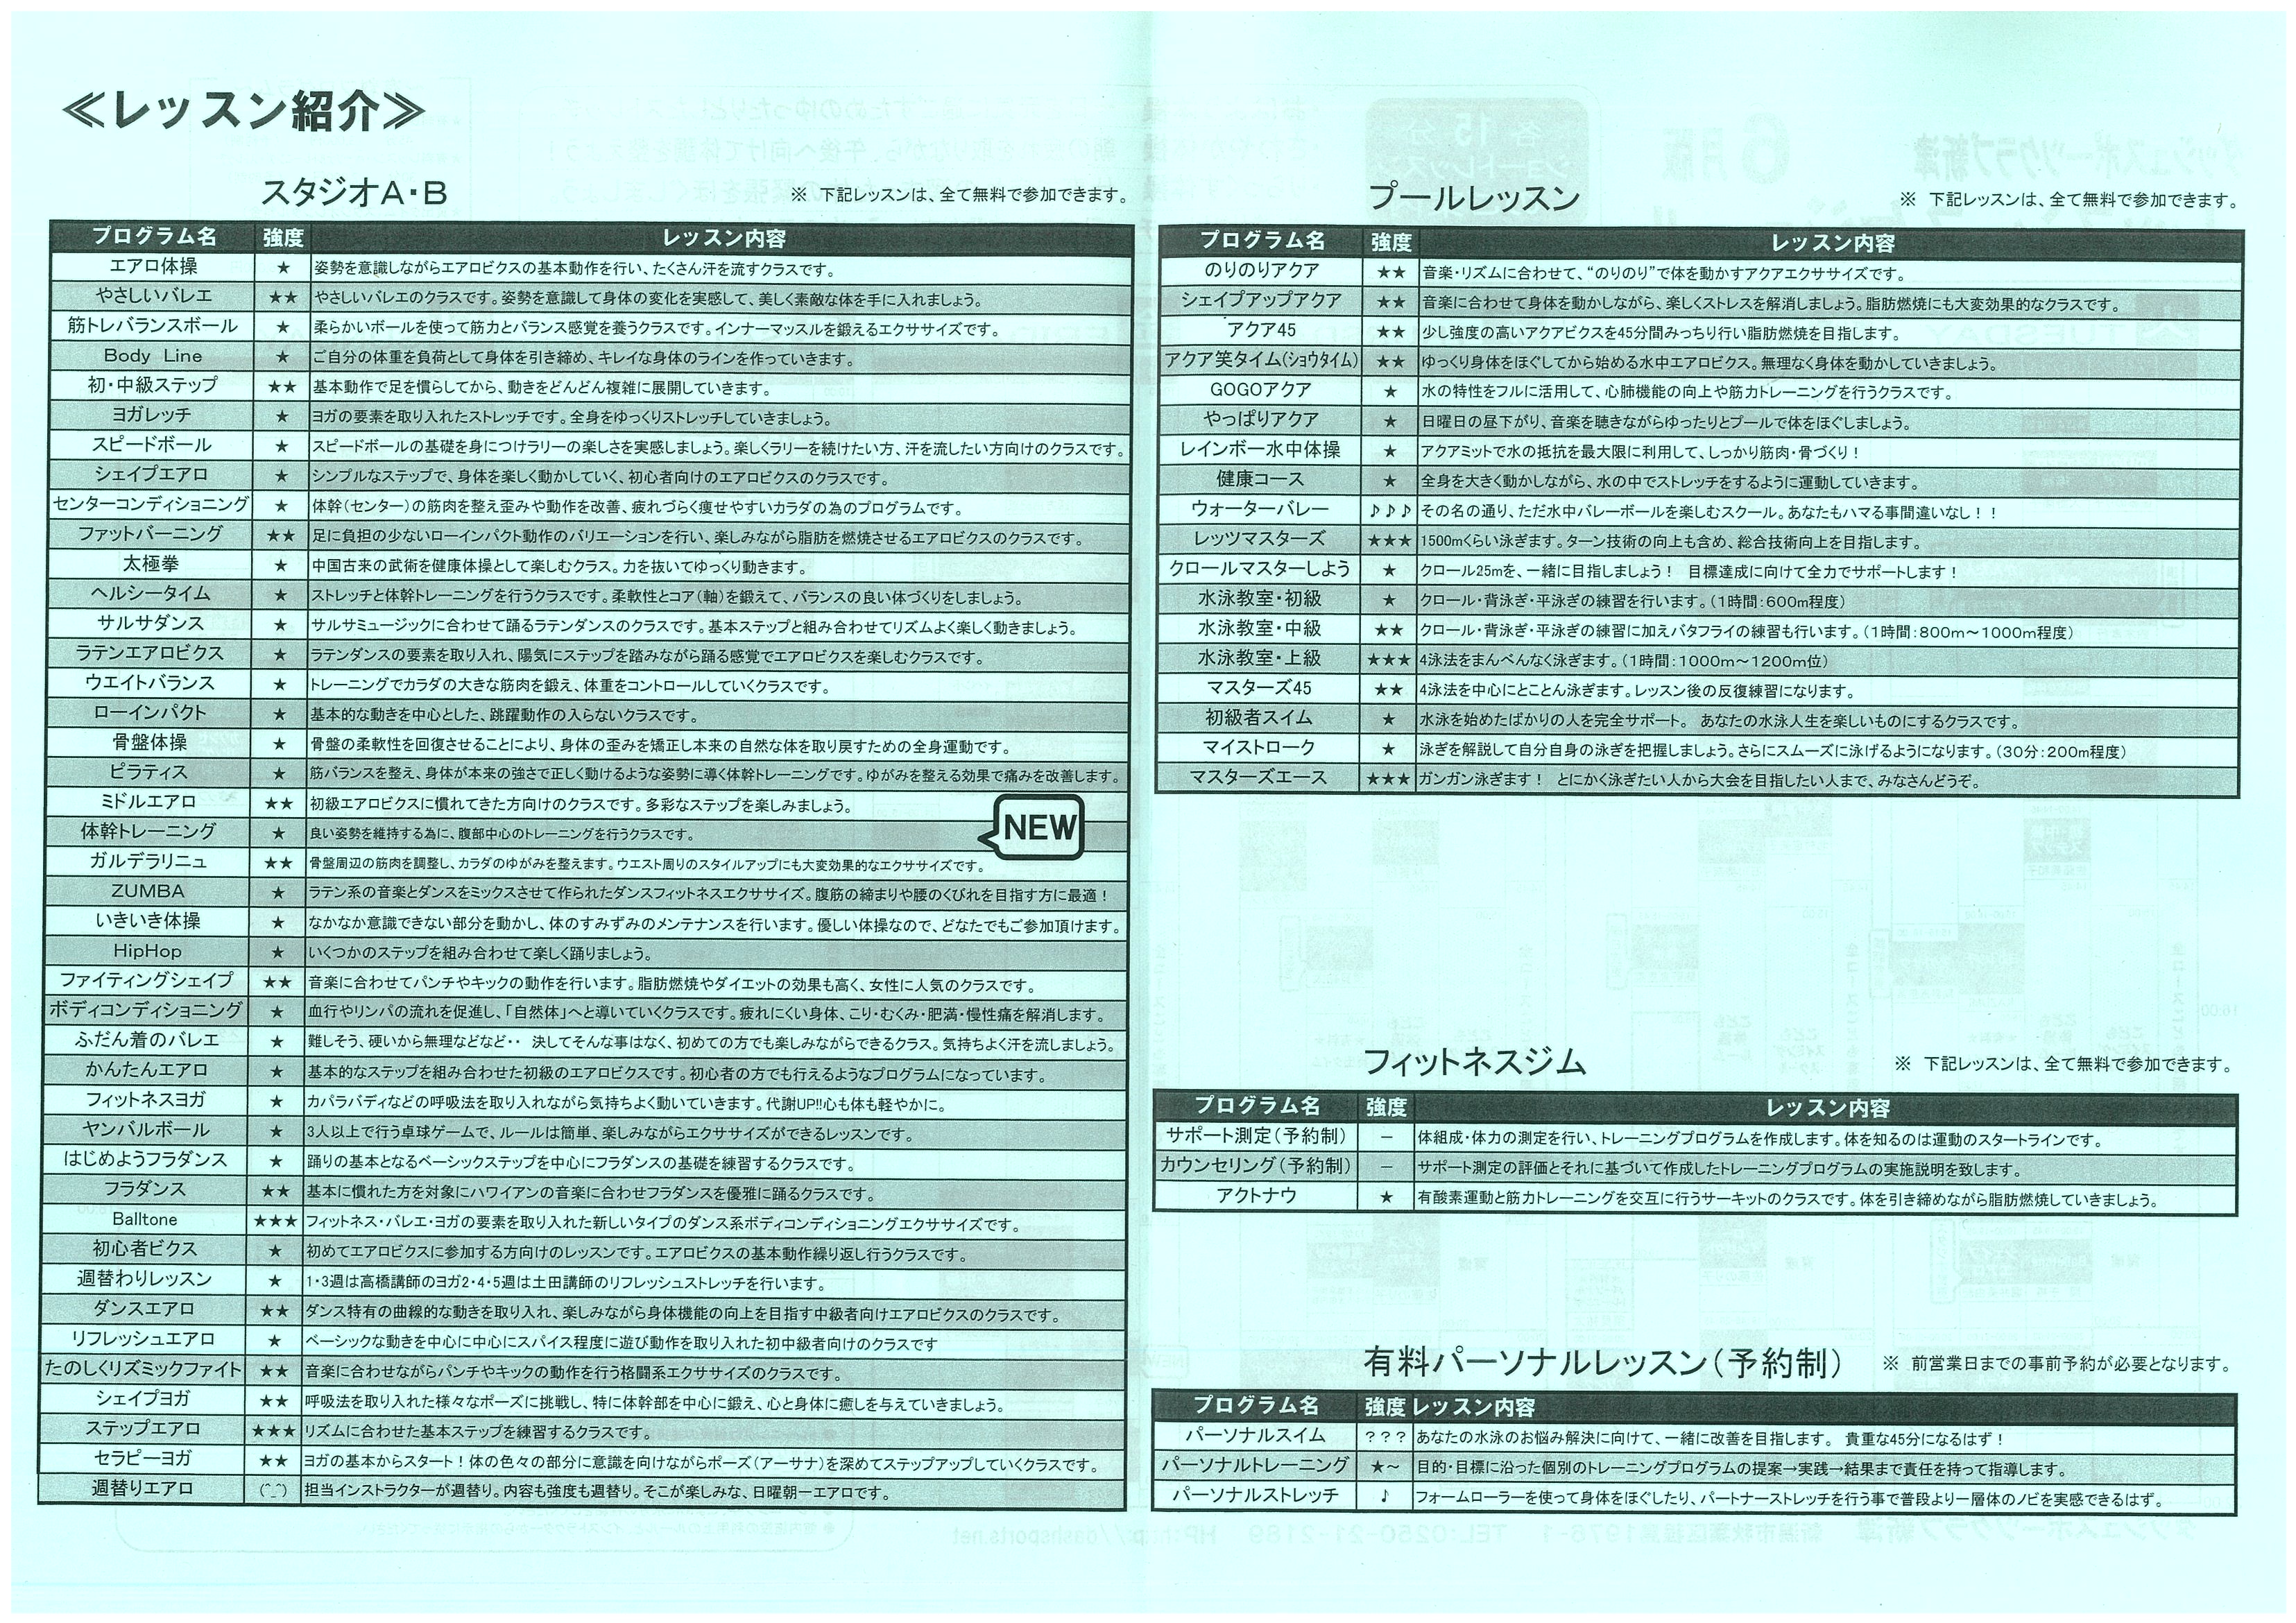 ≪レッスン紹介≫
スタジオA・B ※ 下記レッスンは、全て無料で参加できます。
プログラム名 強度 レッスン内容
エアロ体操 ★ 姿勢を意識しながらエアロビクスの基本動作を行い、たくさん汗を流すクラスです。
やさしいバレエ ★★ やさしいバレエのクラスです。姿勢を意識して身体の変化を実感して、美しく素敵な体を手に入れましょう。
筋トレバランスボール ★ 柔らかいボールを使って筋力とバランス感覚を養うクラスです。インナーマッスルを鍛えるエクササイズです。
Body Line ★ ご自分の体重を負荷として身体を引き締め、キレイな身体のラインを作っていきます。
初・中級ステップ ★★ 基本動作で足を慣らしてから、動きをどんどん複雑に展開していきます。
ヨガレッチ ★ ヨガの要素を取り入れたストレッチです。全身をゆっくりストレッチしていきましょう。
スピードボール ★ スピードボールの基礎を身につけラリーの楽しさを実感しましょう。楽しくラリーを続けたい方、汗を流したい方向けのクラスです。
シェイプエアロ ★ シンプルなステップで、身体を楽しく動かしていく、初心者向けのエアロビクスのクラスです。
センターコンディショニング ★ 体幹(センター)の筋肉を整え歪みや動作を改善、疲れづらく痩せやすいカラダの為のプログラムです。
ファットバーニング ★★ 足に負担の少ないローインパクト動作のバリエーションを行い、楽しみながら脂肪を燃焼させるエアロビクスのクラスです。
太極拳 ★ 中国古来の武術を健康体操として楽しむクラス。力を抜いてゆっくり動きます。
ヘルシータイム ★ ストレッチと体幹トレーニングを行うクラスです。柔軟性とコア(軸)を鍛えて、バランスの良い体づくりをしましょう。
サルサダンス ★ サルサミュージックに合わせて踊るラテンダンスのクラスです。基本ステップと組み合わせてリズムよく楽しく動きましょう。
ラテンエアロビクス ★ ラテンダンスの要素を取り入れ、陽気にステップを踏みながら踊る感覚でエアロビクスを楽しむクラスです。
ウエイトバランス ★ トレーニングでカラダの大きな筋肉を鍛え、体重をコントロールしていくクラスです。
ローインパクト ★ 基本的な動きを中心とした、跳躍動作の入らないクラスです。
骨盤体操 ★ 骨盤の柔軟性を回復させることにより、身体の歪みを矯正し本来の自然な体を取り戻すための全身運動です。
ピラティス ★ 筋バランスを整え、身体が本来の強さで正しく動けるような姿勢に導く体幹トレーニングです。ゆがみを整える効果で痛みを改善します。
ミドルエアロ ★★ 初級エアロビクスに慣れてきた方向けのクラスです。多彩なステップを楽しみましょう。
体幹トレーニング ★ 良い姿勢を維持する為に、腹部中心のトレーニングを行うクラスです。 NEW
ガルデラリニュ ★★ 骨盤周辺の筋肉を調整し、カラダのゆがみを整えます。ウエスト周りのスタイルアップにも大変効果的なエクササイズです。
ZUMBA ★ ラテン系の音楽とダンスをミックスさせて作られたダンスフィットネスエクササイズ。腹筋の締まりや腰のくびれを目指す方に最適!
いきいき体操 ★ なかなか意識できない部分を動かし、体のすみずみのメンテナンスを行います。優しい体操なので、どなたでもご参加頂けます。
HipHop ★ いくつかのステップを組み合わせて楽しく踊りましょう。
ファイティングシェイプ ★★ 音楽に合わせてパンチやキックの動作を行います。脂肪燃焼やダイエットの効果も高く、女性に人気のクラスです。
ボディコンディショニング ★ 血行やリンパの流れを促進し、「自然体」へと導いていくクラスです。疲れにくい身体、こり・むくみ・肥満・慢性痛を解消します。
ふだん着のバレエ ★ 難しそう、硬いから無理などなど・・ 決してそんな事はなく、初めての方でも楽しみながらできるクラス。気持ちよく汗を流しましょう。
かんたんエアロ ★ 基本的なステップを組み合わせた初級のエアロビクスです。初心者の方でも行えるようなプログラムになっています。
フィットネスヨガ ★ カパラバディなどの呼吸法を取り入れながら気持ちよく動いていきます。代謝UP!!心も体も軽やかに。
ヤンバルボール ★ 3人以上で行う卓球ゲームで、ルールは簡単、楽しみながらエクササイズができるレッスンです。
はじめようフラダンス ★ 踊りの基本となるベーシックステップを中心にフラダンスの基礎を練習するクラスです。
フラダンス ★★ 基本に慣れた方を対象にハワイアンの音楽に合わせフラダンスを優雅に踊るクラスです。
Balltone ★★★ フィットネス・バレエ・ヨガの要素を取り入れた新しいタイプのダンス系ボディコンディショニングエクササイズです。
初心者ビクス ★ 初めてエアロビクスに参加する方向けのレッスンです。エアロビクスの基本動作繰り返し行うクラスです。
週替わりレッスン ★ 1・3週は高橋講師のヨガ2・4・5週は土田講師のリフレッシュストレッチを行います。
ダンスエアロ ★★ ダンス特有の曲線的な動きを取り入れ、楽しみながら身体機能の向上を目指す中級者向けエアロビクスのクラスです。
リフレッシュエアロ ★ ベーシックな動きを中心に中心にスパイス程度に遊び動作を取り入れた初中級者向けのクラスです
たのしくリズミックファイト ★★ 音楽に合わせながらパンチやキックの動作を行う格闘系エクササイズのクラスです。
シェイプヨガ ★★ 呼吸法を取り入れた様々なポーズに挑戦し、特に体幹部を中心に鍛え、心と身体に癒しを与えていきましょう。
ステップエアロ ★★★ リズムに合わせた基本ステップを練習するクラスです。
セラピーヨガ ★★ ヨガの基本からスタート!体の色々の部分に意識を向けながらポーズ(アーサナ)を深めてステップアップしていくクラスです。
週替りエアロ (^_^) 担当インストラクターが週替り。内容も強度も週替り。そこが楽しみな、日曜朝一エアロです。
プールレッスン ※ 下記レッスンは、全て無料で参加できます。
プログラム名 強度 レッスン内容
のりのりアクア ★★ 音楽・リズムに合わせて、“のりのり”で体を動かすアクアエクササイズです。
シェイプアップアクア ★★ 音楽に合わせて身体を動かしながら、楽しくストレスを解消しましょう。脂肪燃焼にも大変効果的なクラスです。
アクア45 ★★ 少し強度の高いアクアビクスを45分間みっちり行い脂肪燃焼を目指します。
アクア笑タイム(ショウタイム) ★★ ゆっくり身体をほぐしてから始める水中エアロビクス。無理なく身体を動かしていきましょう。
GOGOアクア ★ 水の特性をフルに活用して、心肺機能の向上や筋力トレーニングを行うクラスです。
やっぱりアクア ★ 日曜日の昼下がり、音楽を聴きながらゆったりとプールで体をほぐしましょう。
レインボー水中体操 ★ アクアミットで水の抵抗を最大限に利用して、しっかり筋肉・骨づくり!
健康コース ★ 全身を大きく動かしながら、水の中でストレッチをするように運動していきます。
ウォーターバレー ♪♪♪ その名の通り、ただ水中バレーボールを楽しむスクール。あなたもハマる事間違いなし!!
レッツマスターズ ★★★ 1500mくらい泳ぎます。ターン技術の向上も含め、総合技術向上を目指します。
クロールマスターしよう ★ クロール25mを、一緒に目指しましょう! 目標達成に向けて全力でサポートします!
水泳教室・初級 ★ クロール・背泳ぎ・平泳ぎの練習を行います。(1時間:600m程度)
水泳教室・中級 ★★ クロール・背泳ぎ・平泳ぎの練習に加えバタフライの練習も行います。(1時間:800m～1000m程度)
水泳教室・上級 ★★★ 4泳法をまんべんなく泳ぎます。(1時間:1000m～1200m位)
マスターズ45 ★★ 4泳法を中心にとことん泳ぎます。レッスン後の反復練習になります。
初級者スイム ★ 水泳を始めたばかりの人を完全サポート。 あなたの水泳人生を楽しいものにするクラスです。
マイストローク ★ 泳ぎを解説して自分自身の泳ぎを把握しましょう。さらにスムーズに泳げるようになります。(30分:200m程度)
マスターズエース ★★★ ガンガン泳ぎます! とにかく泳ぎたい人から大会を目指したい人まで、みなさんどうぞ。
フィットネスジム ※ 下記レッスンは、全て無料で参加できます。
プログラム名 強度 レッスン内容
サポート測定(予約制) － 体組成・体力の測定を行い、トレーニングプログラムを作成します。体を知るのは運動のスタートラインです。
カウンセリング(予約制) － サポート測定の評価とそれに基づいて作成したトレーニングプログラムの実施説明を致します。
アクトナウ ★ 有酸素運動と筋力トレーニングを交互に行うサーキットのクラスです。体を引き締めながら脂肪燃焼していきましょう。
有料パーソナルレッスン(予約制) ※ 前営業日までの事前予約が必要となります。
プログラム名 強度 レッスン内容
パーソナルスイム ??? あなたの水泳のお悩み解決に向けて、一緒に改善を目指します。 貴重な45分になるはず!
パーソナルトレーニング ★～ 目的・目標に沿った個別のトレーニングプログラムの提案→実践→結果まで責任を持って指導します。
パーソナルストレッチ ♪ フォームローラーを使って身体をほぐしたり、パートナーストレッチを行う事で普段より一層体のノビを実感できるはず。